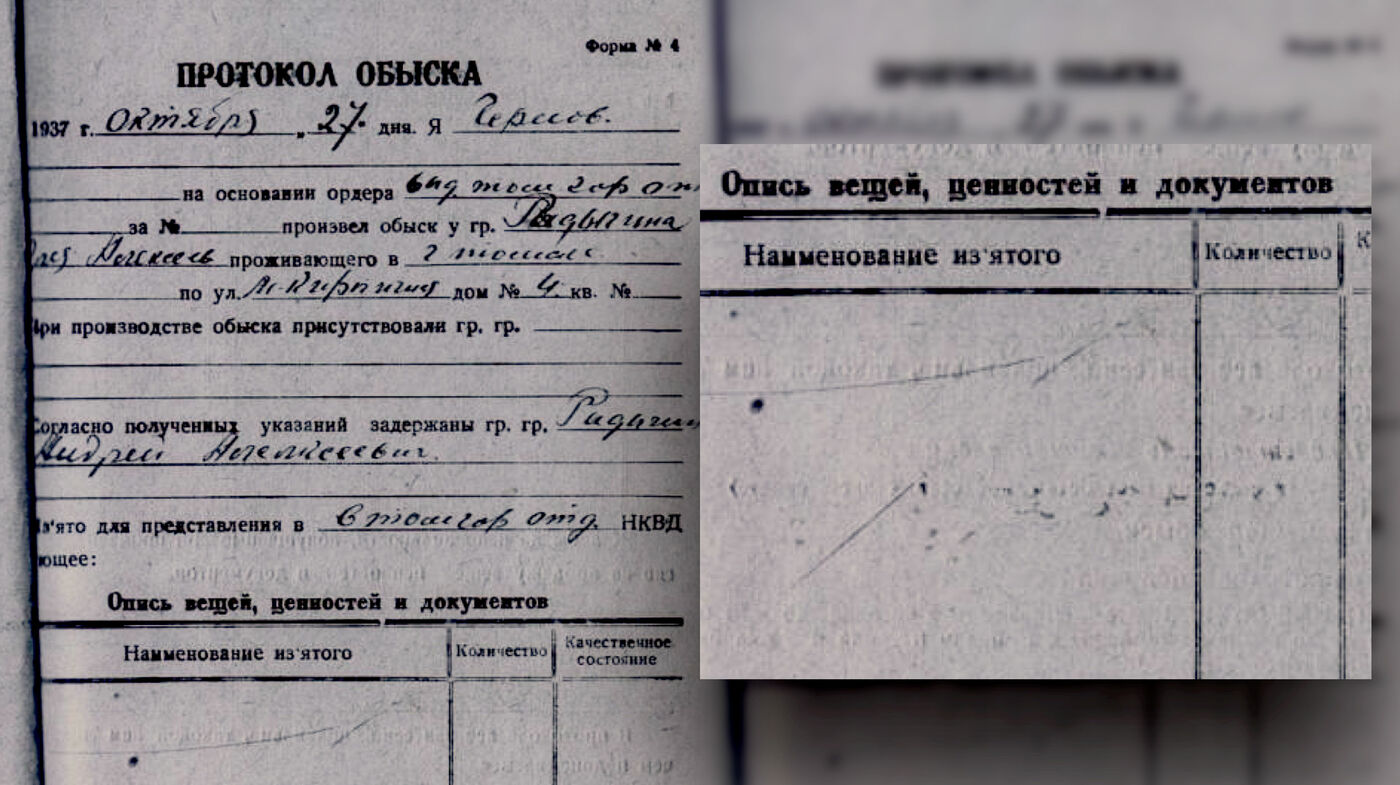 Форма № 4
ПРОТОКОЛ ОБЫСКА
1937 г. октября „27 дня. Я Чернов.
на основании ордера выд. том гор от
за № произвел обыск у гр.
Алексеев проживающего в г
по ул. дом № 4 кв. №
при производстве обыска присутствовали гр. гр.
Согласно полученных указаний задержаны гр. гр.
Андрей Алексеевич.
из'ято для представления в в томгор отд. НКВД
ющее:
Опись вещей, ценностей и документов
Наименование из'ятого Количество Качественное состояние
Опись вещей, ценностей и документов
Наименование из'ятого Количество К